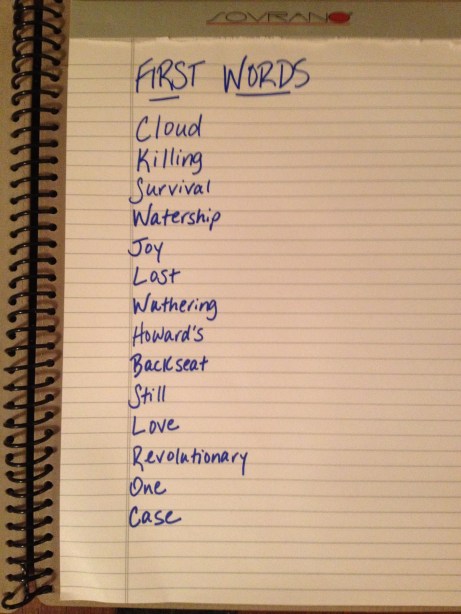 SOVRANO
FIRST WORDS
Cloud
Killing
Survival
Watership
Joy
Last
Wuthering
Howard's
Backseat
Still
Love
Revolutionary
One
Case